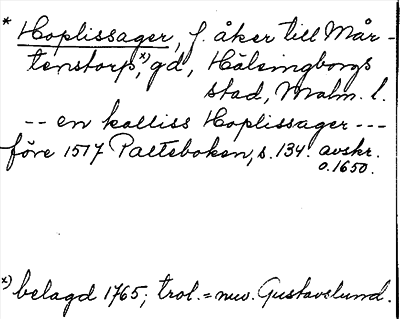 * Hoplissager, f. åker till Mår-
tenstorp,ˣ⁾ gd, Hälsingborgs
stad, Malm. l.
-- en kalliss Hoplissager ---
före 1517 Palteboken, s. 134. avskr.
o. 1650.
ˣ⁾ belagd 1765; trol. = nuv. Gustavslund.